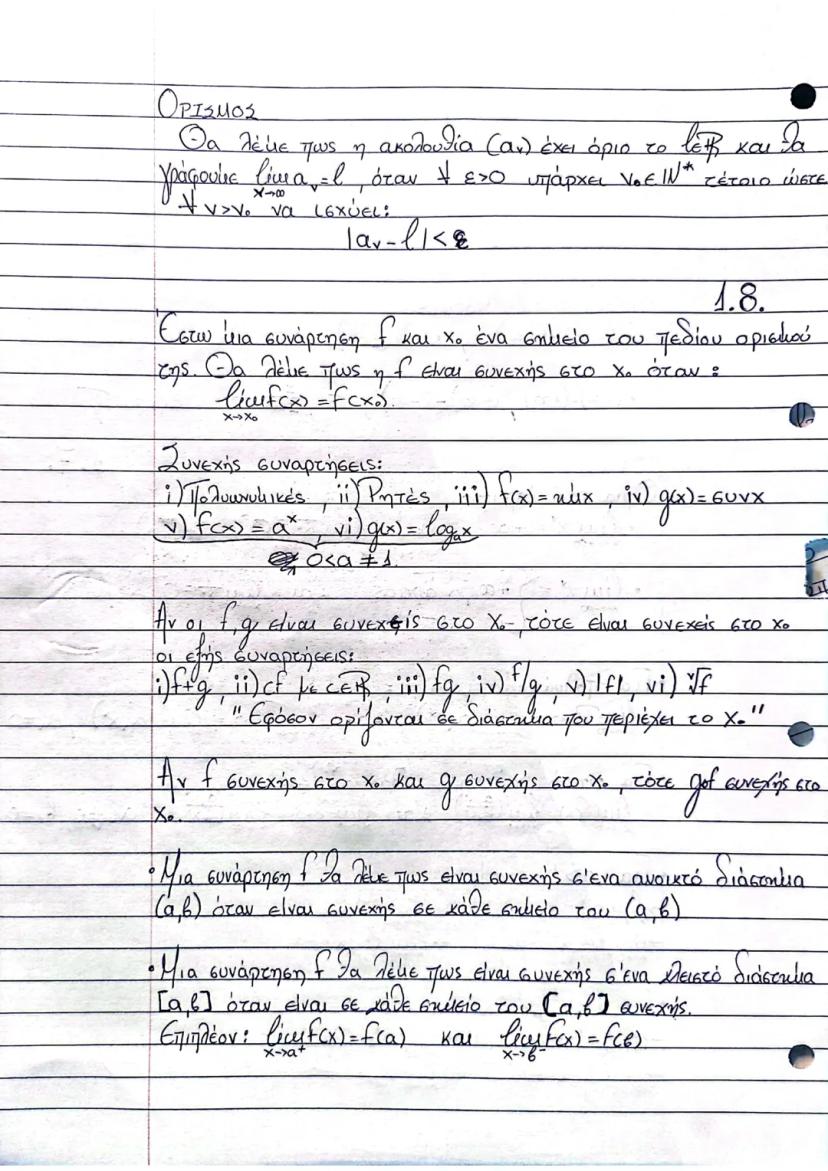 ΟΡΙΣΜΟΣ
Θα λέμε πως η ακολουθία (αν) έχει όριο το l∈ℝ και θα
γράφουμε lim aν = l , όταν ∀ ε>0 υπάρχει ν₀∈ℕ* τέτοιο ώστε
x→∞
∀ ν>ν₀ να ισχύει:
|aν - l| < ε
1.8.
Έστω μια συνάρτηση f και x₀ ένα σημείο του πεδίου ορισμού
της. Θα λέμε πως η f είναι συνεχής στο x₀ όταν:
lim f(x) = f(x₀)
x→x₀
Συνεχής συναρτήσεις:
i) Πολυωνυμικές , ii) Ρητές , iii) f(x) = ημx , iv) g(x) = συνx
v) f(x) = aˣ , vi) g(x) = logₐx
0<a≠1.
Αν οι f,g είναι συνεχείς στο x₀, τότε είναι συνεχείς στο x₀
οι εξής συναρτήσεις:
i) f+g , ii) cf με c∈ℝ , iii) fg , iv) f/g , v) |f| , vi) ᵛ√f
"Εφόσον ορίζονται σε διάστημα που περιέχει το x₀"
Αν f συνεχής στο x₀ και g συνεχής στο x₀ , τότε gof συνεχής στο
x₀.
• Μια συνάρτηση f θα λέμε πως είναι συνεχής σ'ένα ανοικτό διάστημα
(a,β) όταν είναι συνεχής σε κάθε σημείο του (a,β)
• Μια συνάρτηση f θα λέμε πως είναι συνεχής σ'ένα κλειστό διάστημα
[a,β] όταν είναι σε κάθε σημείο του [a,β] συνεχής.
Επιπλέον: lim f(x) = f(a) και lim f(x) = f(β)
x→a⁺ x→β⁻